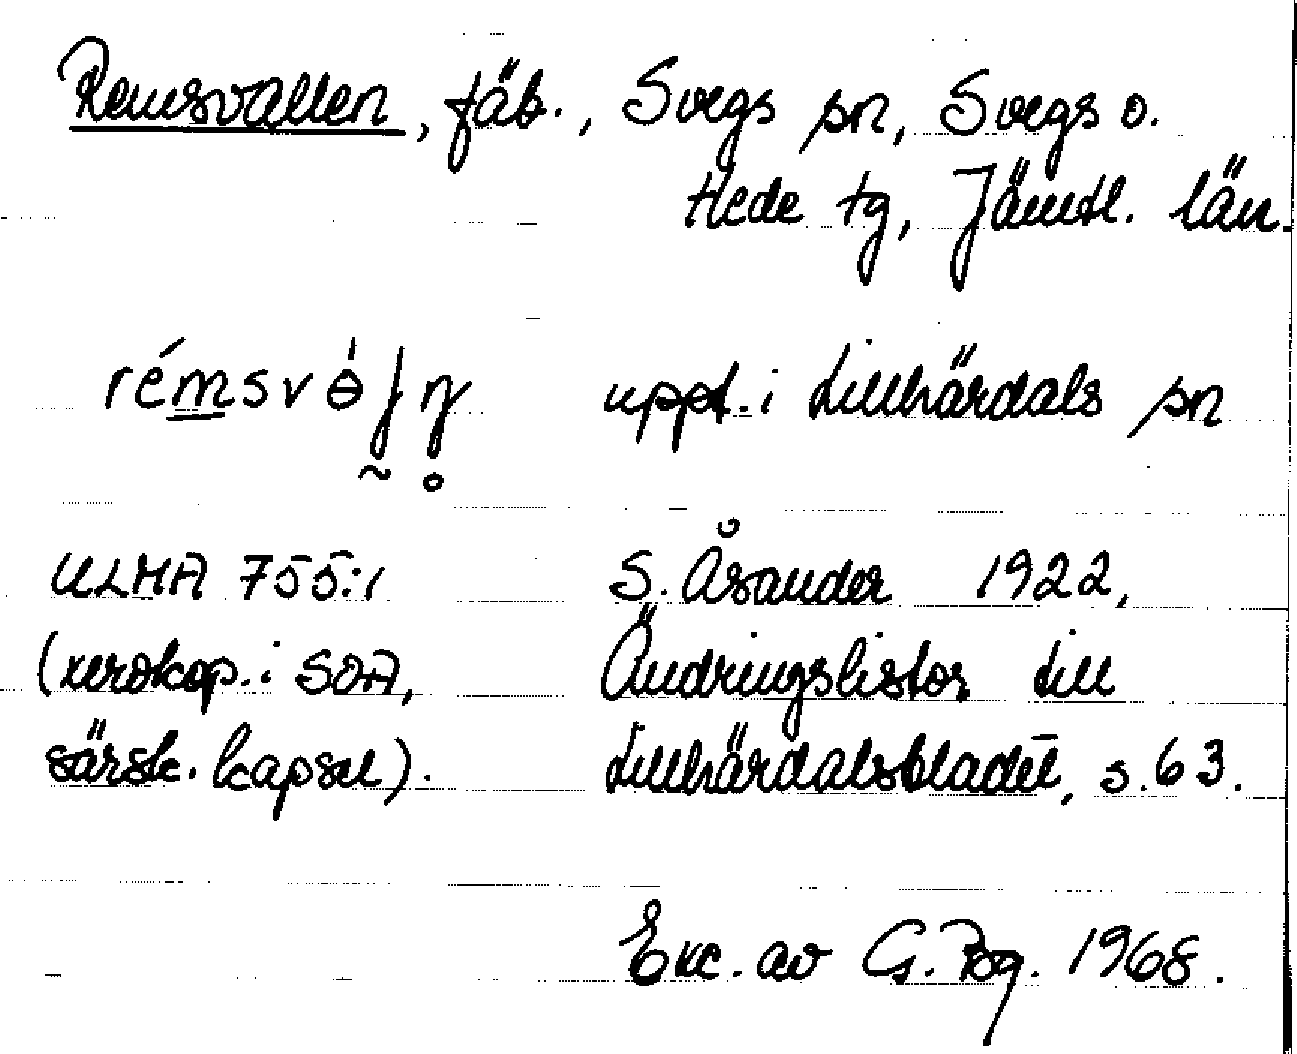 Remsvallen, fäb., Svegs sn, Svegs o.
Hede tg, Jämtl. län.
rémsvɵ́ʃn̥ uppt. i Lillhärdals sn
ULMA 755:1 S. Åsander 1922,
(xerokop. i SOA, Ändringslistor till
särsk. kapsel). Lillhärdalsbladet, s. 63.
Exc. av G. Bg. 1968.